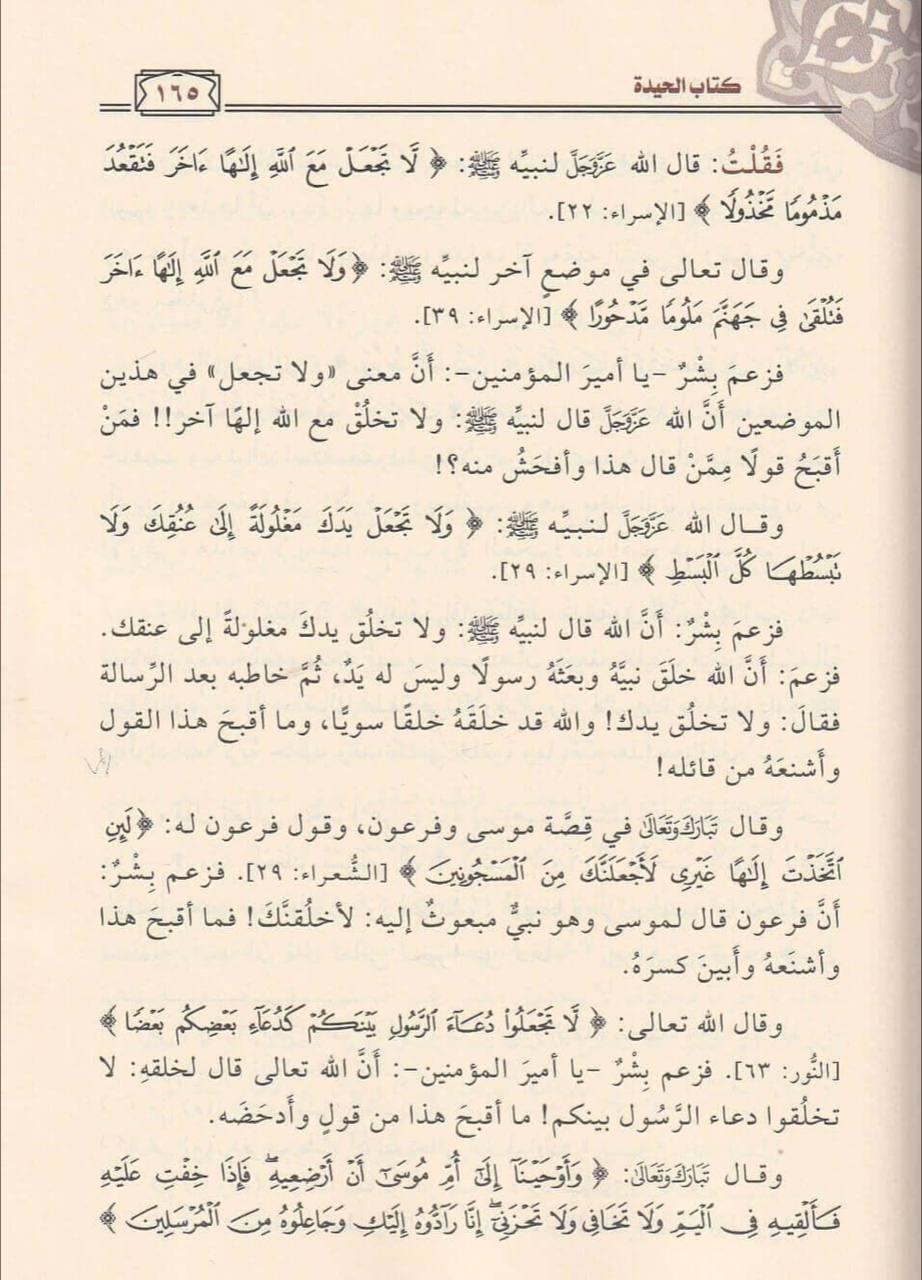 كتاب الحيدة
١٦٥
فَقُلْتُ: قال الله عَزَّوَجَلَّ لنبيِّه ﷺ: ﴿ لَّا تَجْعَلْ مَعَ ٱللَّهِ إِلَٰهًا ءَاخَرَ فَتَقْعُدَ
مَذْمُومًا مَّخْذُولًا ﴾ [الإسراء: ٢٢].
وقال تعالى في موضعٍ آخر لنبيِّه ﷺ: ﴿وَلَا تَجْعَلْ مَعَ ٱللَّهِ إِلَٰهًا ءَاخَرَ
فَتُلْقَىٰ فِى جَهَنَّمَ مَلُومًا مَّدْحُورًا ﴾ [الإسراء: ٣٩].
فزعمَ بِشْرٌ –يا أميرَ المؤمنين–: أَنَّ معنى «ولا تجعل» في هذين
الموضعين أَنَّ الله عَزَّوَجَلَّ قال لنبيِّه ﷺ: ولا تخلُقْ مع الله إلهًا آخر!! فمَنْ
أَقبَحُ قولًا مِمَّنْ قال هذا وأفحَشُ منه؟!
وقال الله عَزَّوَجَلَّ لنبيِّه ﷺ: ﴿ وَلَا تَجْعَلْ يَدَكَ مَغْلُولَةً إِلَىٰ عُنُقِكَ وَلَا
تَبْسُطْهَا كُلَّ ٱلْبَسْطِ ﴾ [الإسراء: ٢٩].
فزعمَ بِشْرٌ: أَنَّ الله قال لنبيِّه ﷺ: ولا تخلُق يدكَ مغلولةً إلى عنقك.
فزعمَ: أَنَّ الله خلَقَ نبيَّهُ وبعَثَهُ رسولًا وليسَ له يَدٌ، ثُمَّ خاطبه بعد الرِّسالة
فقالَ: ولا تخلُق يدك! والله قد خلَقَهُ خلقًا سويًّا، وما أقبحَ هذا القول
وأَشنعَهُ من قائله!
وقال تَبَارَكَوَتَعَالَىٰ في قِصَّة موسى وفرعون، وقول فرعون له: ﴿لَئِنِ
ٱتَّخَذْتَ إِلَٰهًا غَيْرِى لَأَجْعَلَنَّكَ مِنَ ٱلْمَسْجُونِينَ ﴾ [الشُّعراء: ٢٩]. فزعم بِشْرٌ:
أَنَّ فرعون قال لموسى وهو نبيٌّ مبعوثٌ إليه: لأخلُقنَّكَ! فما أقبحَ هذا
وأشنَعَهُ وأَبينَ كسرَهُ.
وقال الله تعالى: ﴿ لَّا تَجْعَلُوا۟ دُعَآءَ ٱلرَّسُولِ بَيْنَكُمْ كَدُعَآءِ بَعْضِكُم بَعْضًا ﴾
[النُّور: ٦٣]. فزعم بِشْرٌ –يا أميرَ المؤمنين–: أَنَّ الله تعالى قال لخلقهِ: لا
تخلُقوا دعاء الرَّسُول بينكم! ما أقبحَ هذا من قولٍ وأَدحَضَه.
وقال تَبَارَكَوَتَعَالَىٰ: ﴿ وَأَوْحَيْنَآ إِلَىٰٓ أُمِّ مُوسَىٰٓ أَنْ أَرْضِعِيهِ ۖ فَإِذَا خِفْتِ عَلَيْهِ
فَأَلْقِيهِ فِى ٱلْيَمِّ وَلَا تَخَافِى وَلَا تَحْزَنِىٓ ۖ إِنَّا رَآدُّوهُ إِلَيْكِ وَجَاعِلُوهُ مِنَ ٱلْمُرْسَلِينَ ﴾